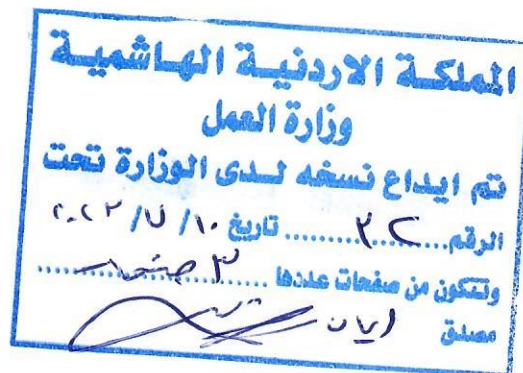 المملكة الاردنية الهاشمية
وزارة العمل
تم ايداع نسخه لدى الوزارة تحت
الرقم ..... ٣٢ ..... تاريخ ١٠ / ٧ / ٢٠٢٣
وتتكون من صفحات عددها ..... ٣ صفحات .....
مصدق